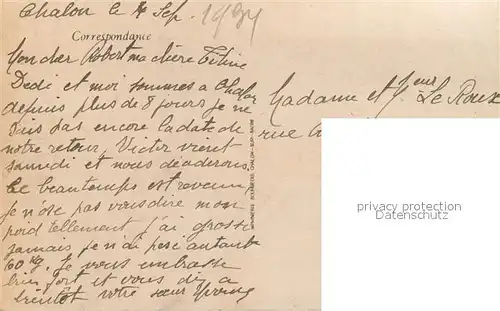 Chalon le 4 Sep. 1934
Correspondance
Mon cher Robert ma chère Titine
Dédé et moi sommes a Chalon
depuis plus de 8 jours je ne
sais pas encore la date de
notre retour, Victor vient
samedi et nous déciderons.
Le beau temps est revenu
je n'ose pas vous dire mon
poid tellement j'ai grossi
jamais je n'ai pesé autant
60 Kg. Je vous embrasse
bien fort et vous dis a
bientôt votre sœur Yvonne
Madame et Mr Le Roux
rue
privacy protection
Datenschutz